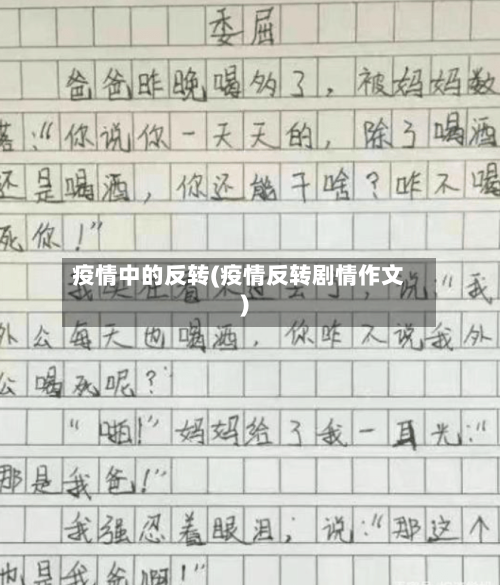 委屈
爸爸昨晚喝多了，被妈妈数
落:“你说你一天天的，除了喝酒
还是喝酒，你还能干啥？咋不喝
死你！”
疫情中的反转(疫情反转剧情作文
)
说:“我
外公每天也喝酒，你咋不说我外
公喝死呢？
“啪!”妈妈给了我一耳光:“
那是我爸！”
我强忍着眼泪；说:“那这个
也是我爸啊！”